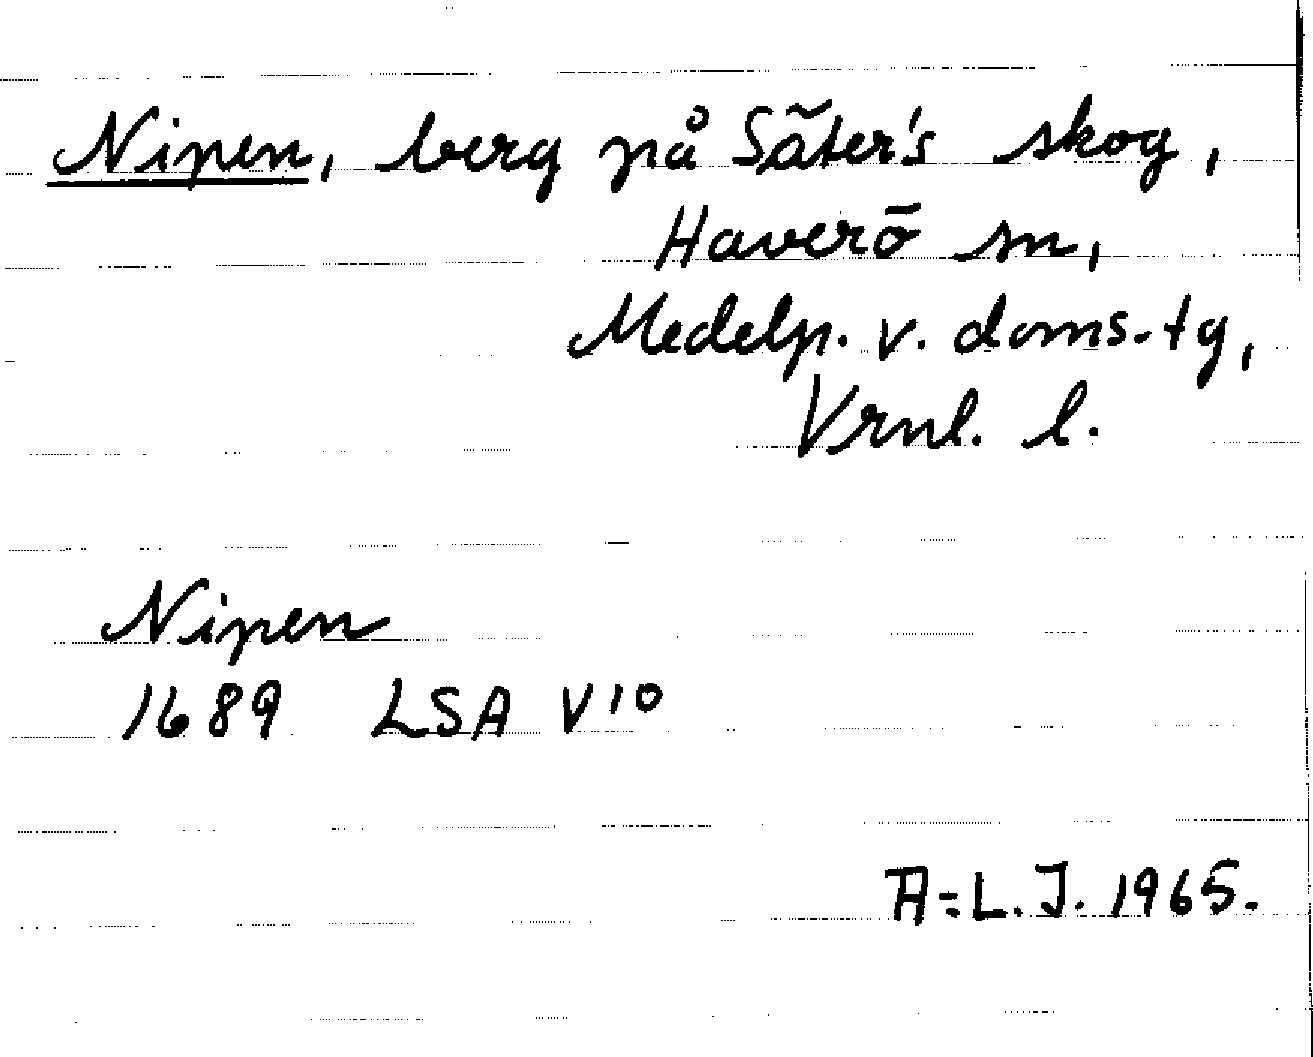 Nipen, berg på Säter's skog,
Haverö sn,
Medelp. v. doms-tg,
Vrnl. l.
Nipen
1689 LSA V10
A-L.J. 1965.